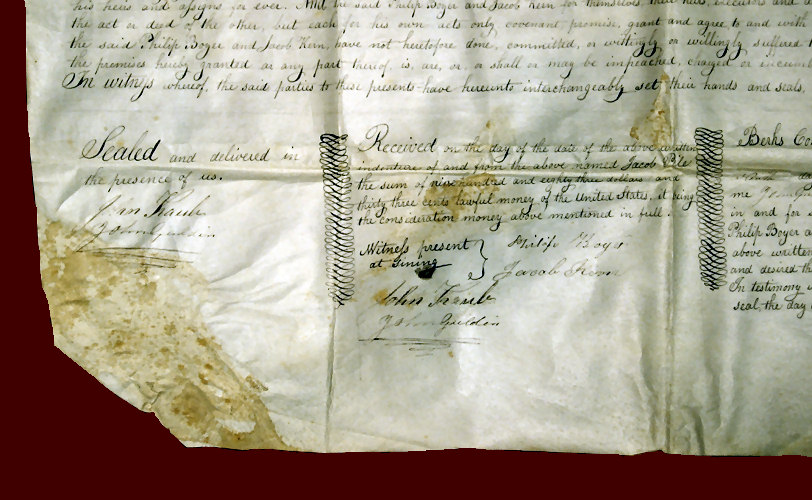 his heirs and assigns for ever. And the said Philip Boyer and Jacob Kern for themselves, their heirs, executors and
the act or deed of the other, but each for his own acts only covenant, promise, grant and agree to and with
the said Philip Boyer and Jacob Kern, have not heretofore done, committed, or wittingly or willingly suffered
the premises hereby granted or any part thereof, is, are, or, or shall or may be impeached, charged or incumb
In witness whereof, the said parties to these presents have hereunto interchangeably set their hands and seals,
Sealed and delivered in
the presence of us.
John Kraub
John Guldin
Received on the day of the date of the above written
indenture of and from the above named Jacob
the sum of nine hundred and eighty three dollars and
thirty three cents lawful money of the United States, it being
the consideration money above mentioned in full.
Witness present
at signing
Philip Boyer
Jacob Kern
John Kraub
John Guldin
Berks Co
me
in and for
Philip Boyer a
above written
and desired th
In testimony
seal, the day